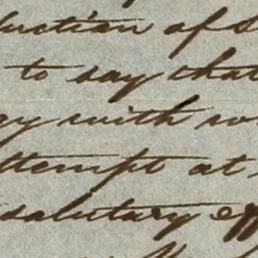 uction of S
to say that
y with
ttempt at
salutary eff